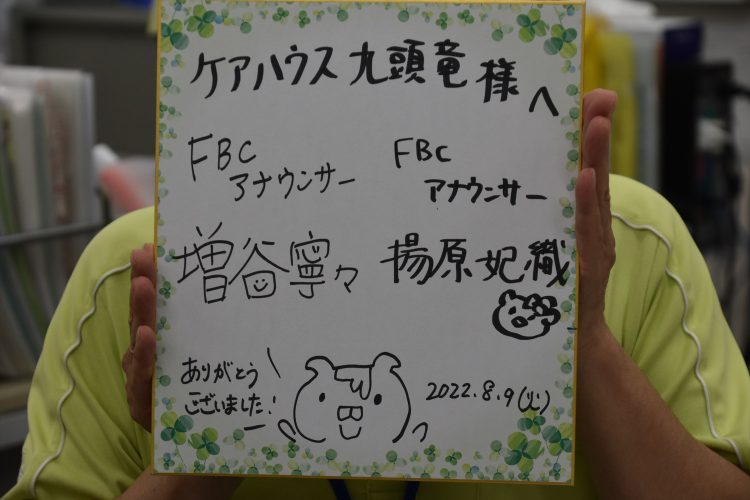 ケアハウス九頭竜様へ
FBC
アナウンサー
増谷寧々
FBC
アナウンサー
揚原妃織
ありがとう
ございました!
2022.8.9(火)